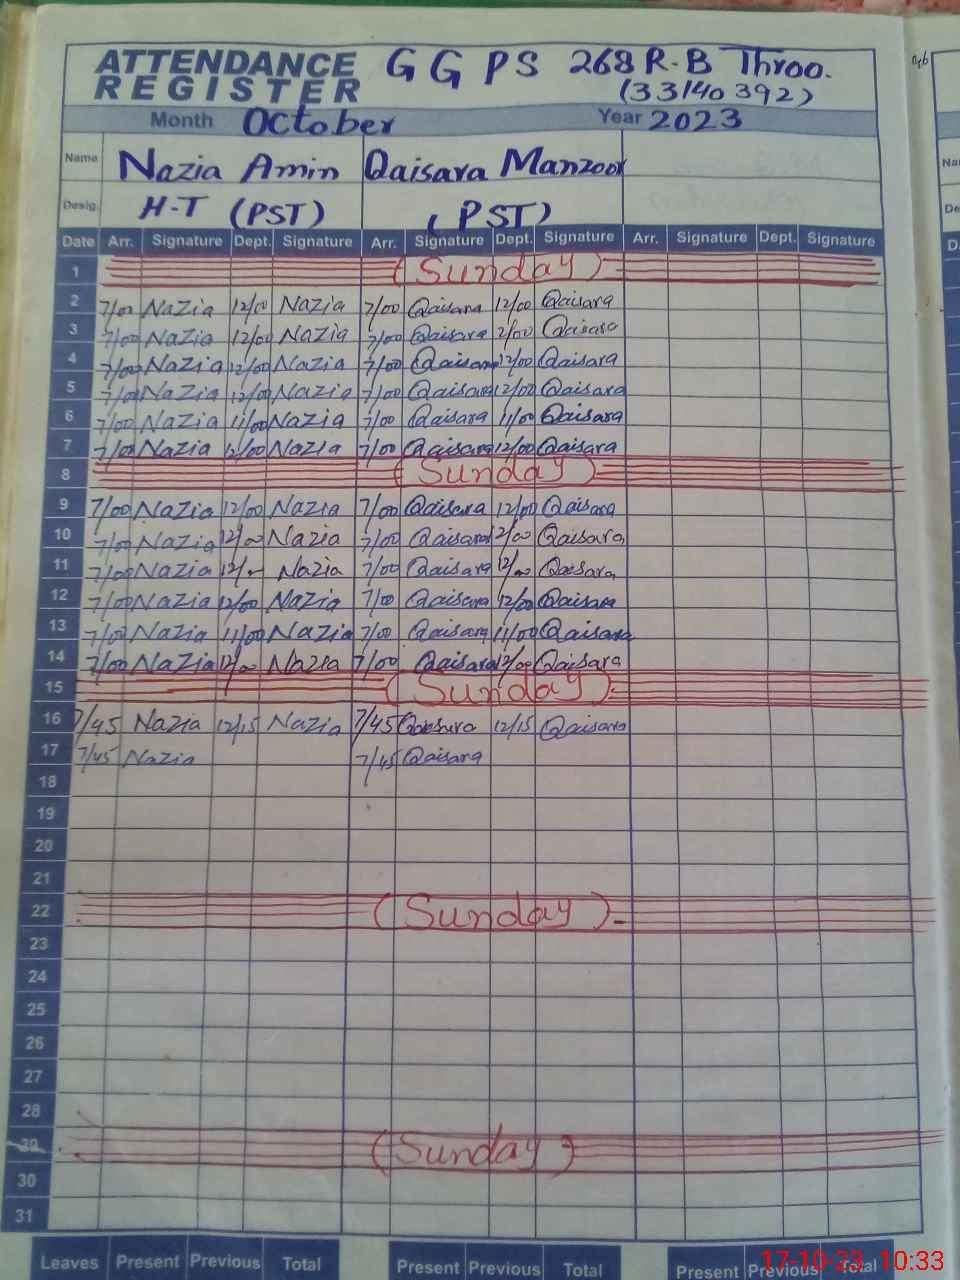 ATTENDANCE REGISTER G G P S 268 R-B Throo.
(33140392)
Month October Year 2023
Name Nazia Amin Qaisara Manzoor
Desig. H-T (PST) (PST)
Date Arr. Signature Dept. Signature Arr. Signature Dept. Signature Arr. Signature Dept. Signature
1 (Sunday)
2 7/00 Nazia 12/00 Nazia 7/00 Qaisara 12/00 Qaisara
3 7/00 Nazia 12/00 Nazia 7/00 Qaisara 2/00 Qaisara
4 7/00 Nazia 12/00 Nazia 7/00 Qaisara 12/00 Qaisara
5 7/00 Nazia 12/00 Nazia 7/00 Qaisara 12/00 Qaisara
6 7/00 Nazia 11/00 Nazia 7/00 Qaisara 11/00 Qaisara
7 7/00 Nazia 12/00 Nazia 7/00 Qaisara 12/00 Qaisara
8 (Sunday)
9 7/00 Nazia 12/00 Nazia 7/00 Qaisara 12/00 Qaisara
10 7/00 Nazia 12/00 Nazia 7/00 Qaisara 12/00 Qaisara
11 7/00 Nazia 12/00 Nazia 7/00 Qaisara 12/00 Qaisara
12 7/00 Nazia 12/00 Nazia 7/00 Qaisara 12/00 Qaisara
13 7/00 Nazia 11/00 Nazia 7/00 Qaisara 11/00 Qaisara
14 7/00 Nazia 12/00 Nazia 7/00 Qaisara 12/00 Qaisara
15 (Sunday)
16 7/45 Nazia 12/15 Nazia 7/45 Qaisara 12/15 Qaisara
17 7/45 Nazia 7/45 Qaisara
18
19
20
21
22 (Sunday)
23
24
25
26
27
28
29 (Sunday)
30
31
Leaves Present Previous Total Present Previous Total Present Previous Total
17-10-23 10:33